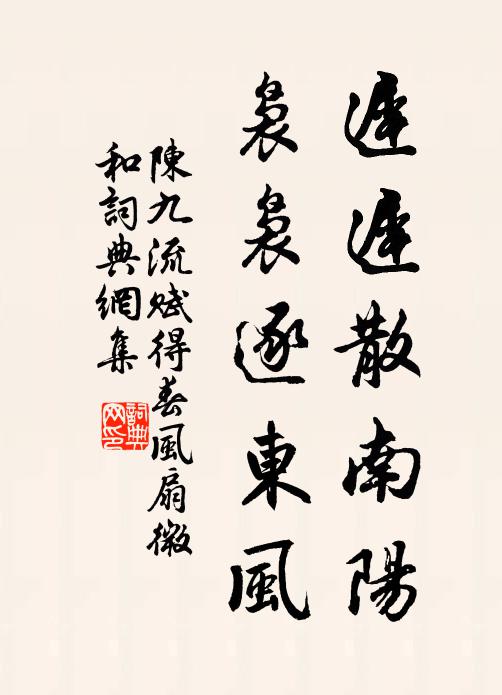 遲遲散南陽
裊裊逐東風
陳九流賦得春風扇微
和詞典網集
詞典
网印